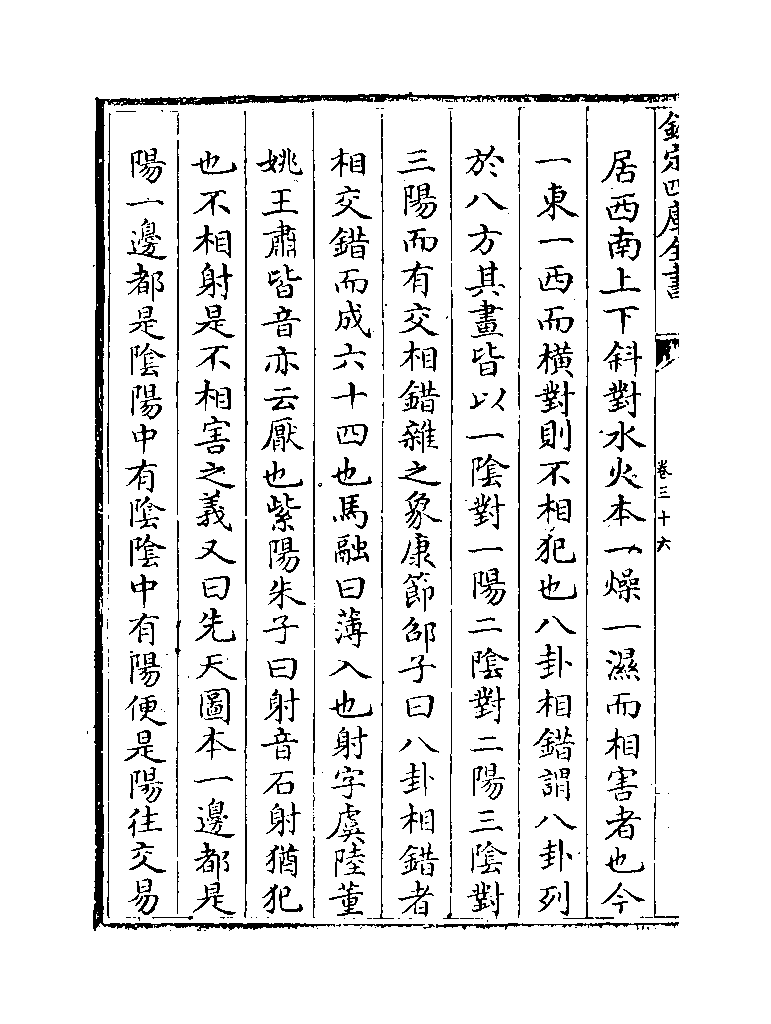 欽定四庫全書
卷三十六
居西南上下斜對水火本一燥一濕而相害者也今
一東一西而橫對則不相犯也八卦相錯謂八卦列
於八方其畫皆以一陰對一陽二陰對二陽三陰對
三陽而有交相錯雜之象康節邵子曰八卦相錯者
相交錯而成六十四也馬融曰薄入也射字虞陸董
姚王肅皆音亦云厭也紫陽朱子曰射音石射猶犯
也不相射是不相害之義又曰先天圖本一邊都是
陽一邊都是陰陽中有陰陰中有陽便是陽往交易